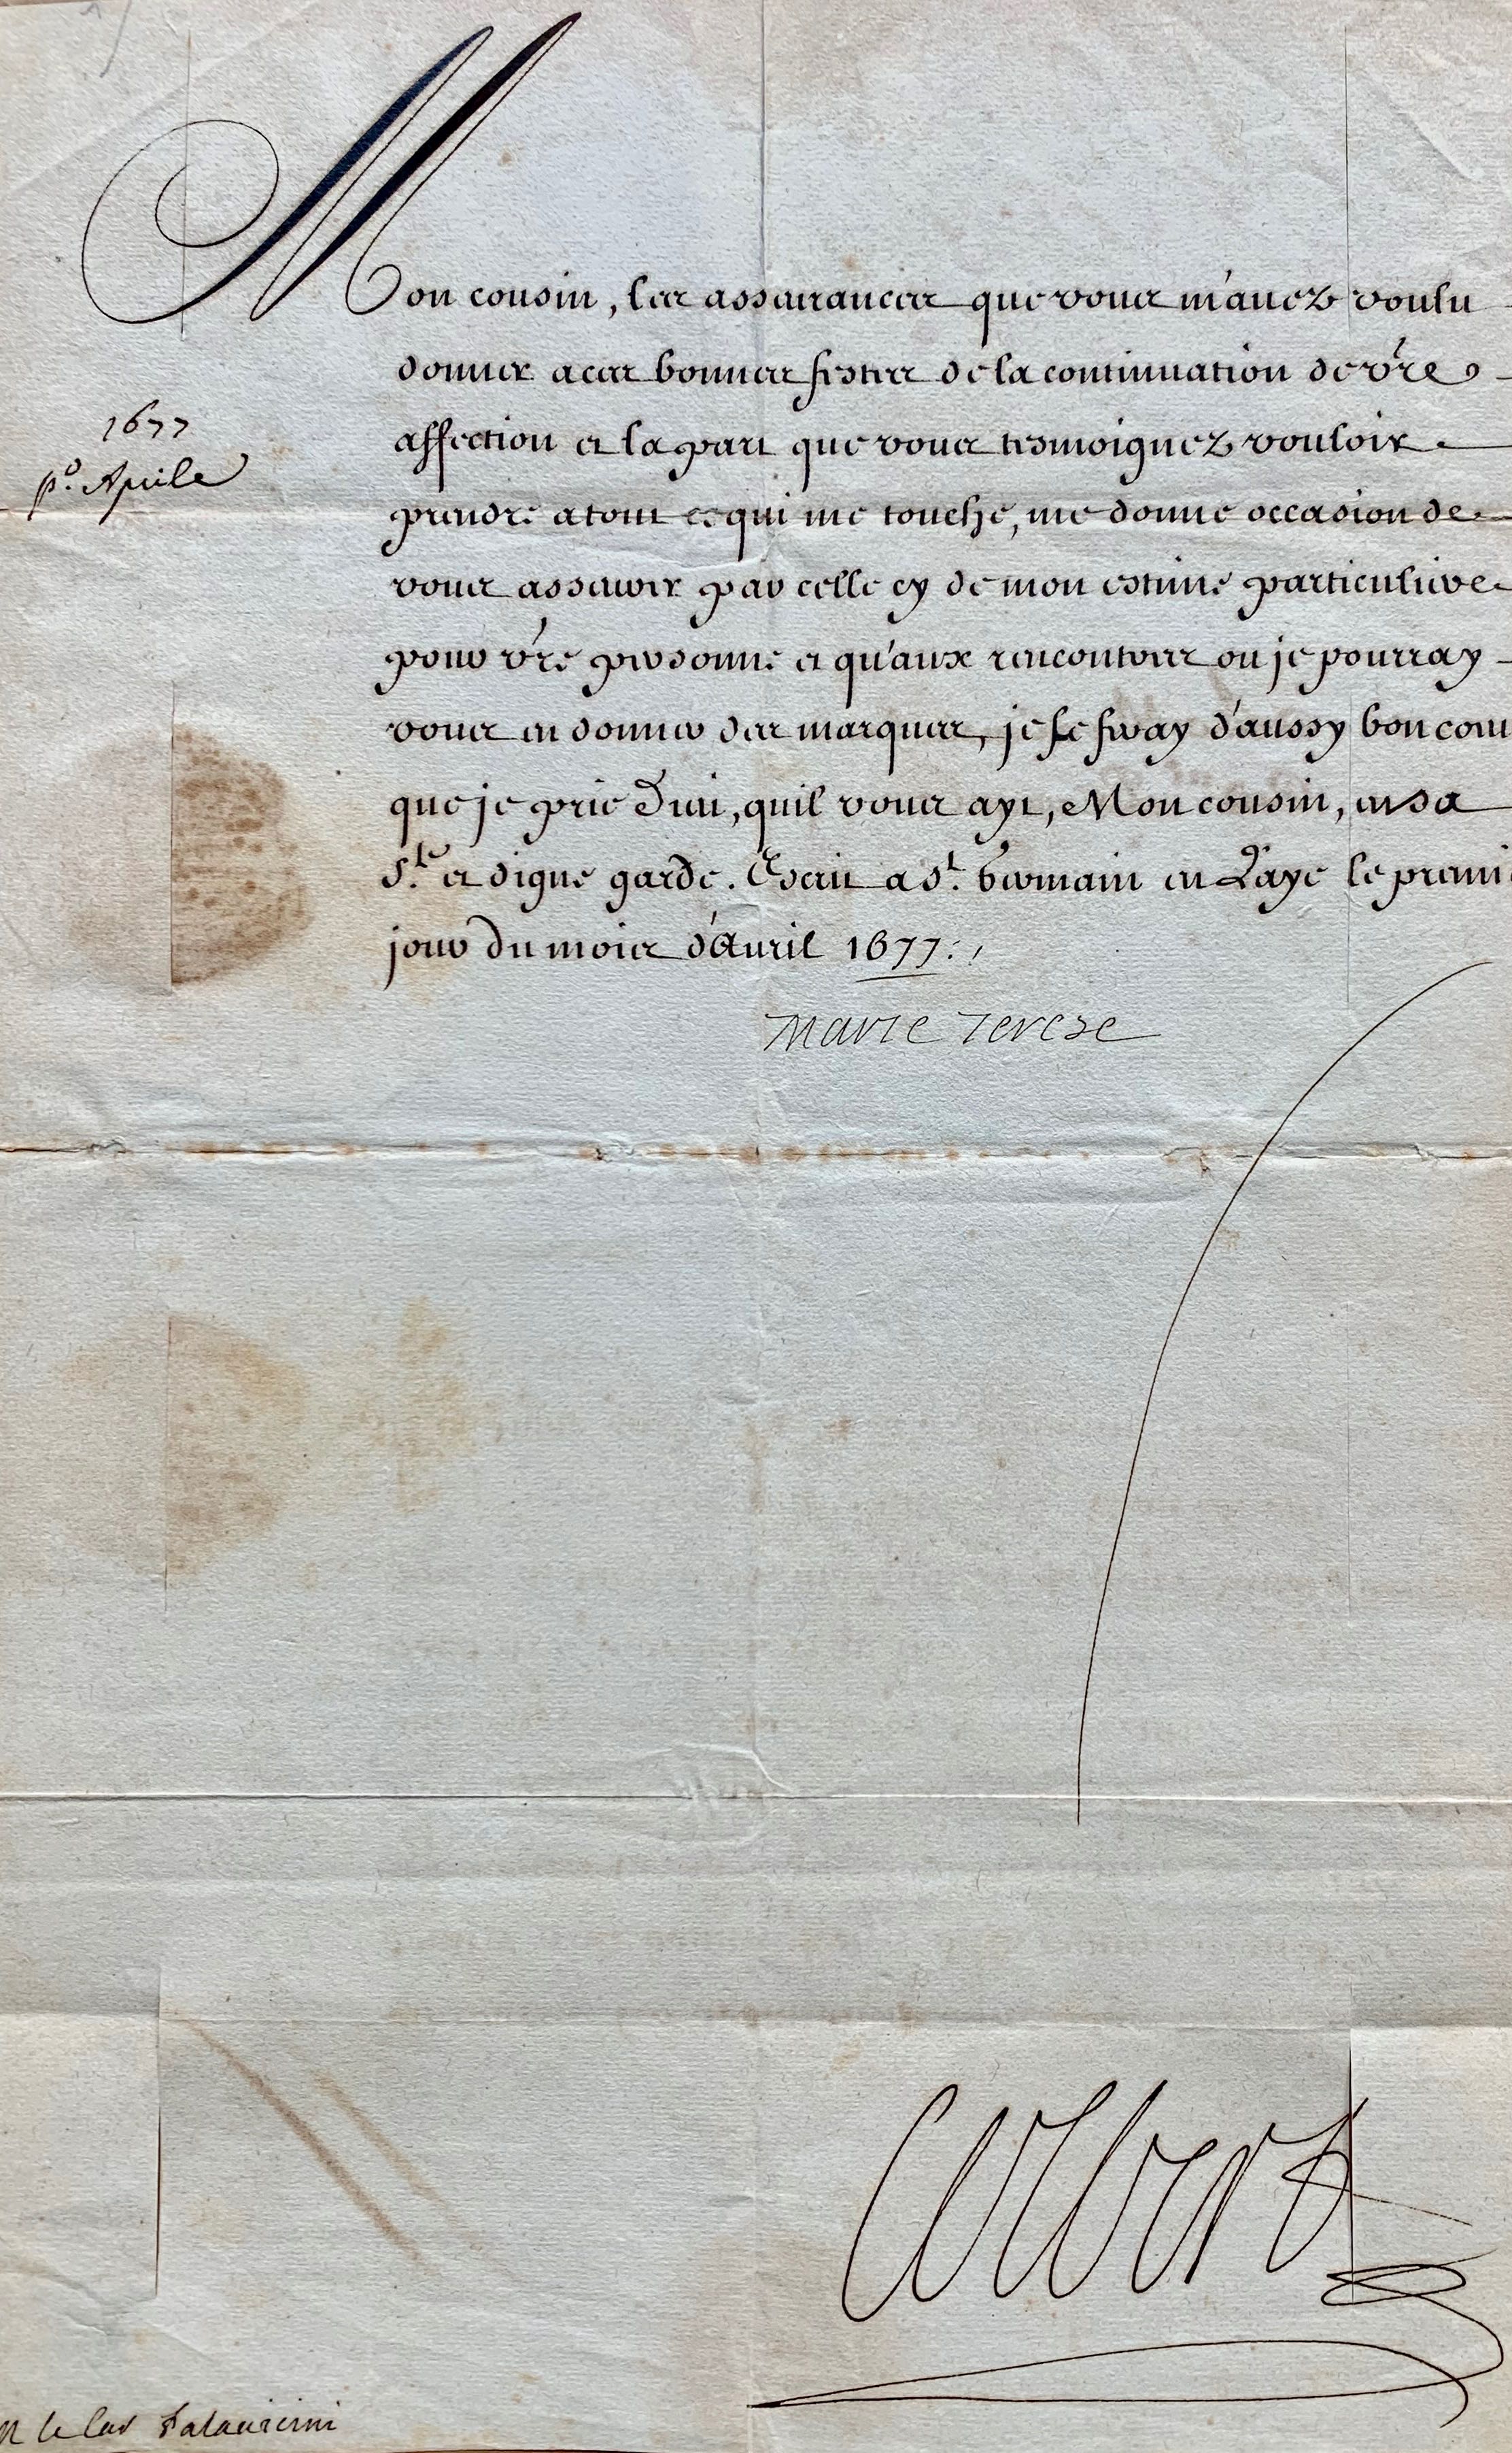 Mon cousin, les asseurances que vous m'auez voulu
donner a ces bonnes festes de la continuation de vr̃e
affection et la part que vous tesmoignez vouloir
1677
p.º Aprile
prendre a tout ce qui me touche, me donne occasion de
vous asseurer par celle cy de mon estime particuliere
pour vr̃e personne et qu'aux rencontres ou je pourray
vous en donner des marques, je le feray d'aussy bon coeu
que je prie Dieu, quil vous ayt, Mon cousin, en sa
s.te et digne garde. Escrit a s.t Germain en Laye le premi
jour du mois d'Auril 1677.
Marie Terese
Colbert
M le Car Palauicini